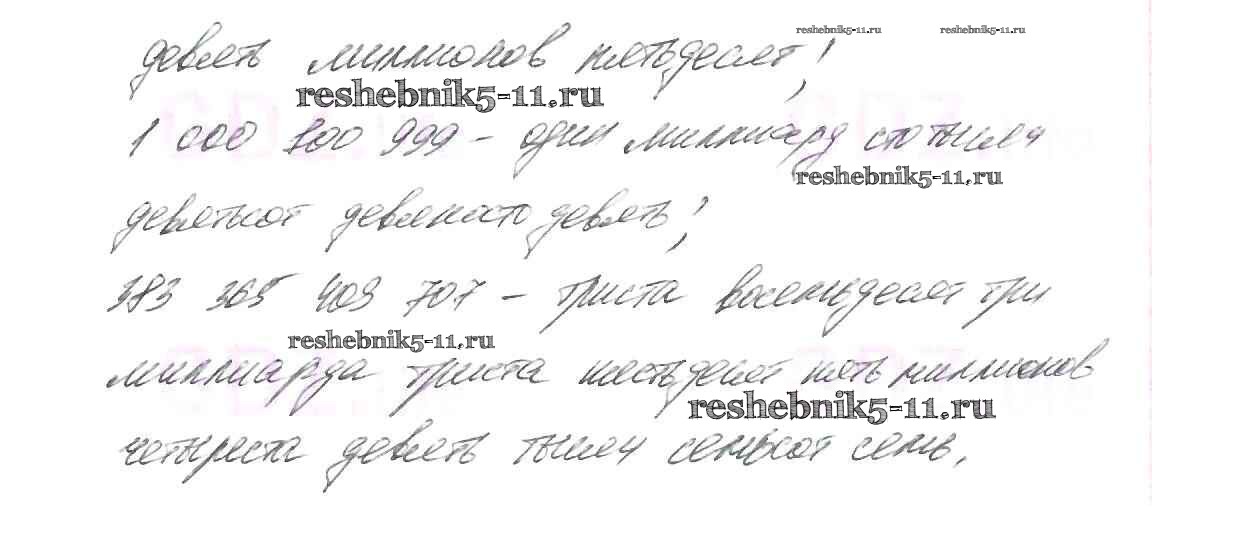 reshebnik5-11.ru reshebnik5-11.ru
девять миллионов пятьдесят;
reshebnik5-11.ru
1 000 100 999 - один миллиард сто тысяч
reshebnik5-11.ru
девятьсот девяносто девять;
383 365 409 707 - триста восемьдесят три
reshebnik5-11.ru
миллиарда триста шестьдесят пять миллионов
reshebnik5-11.ru
четыреста девять тысяч семьсот семь.